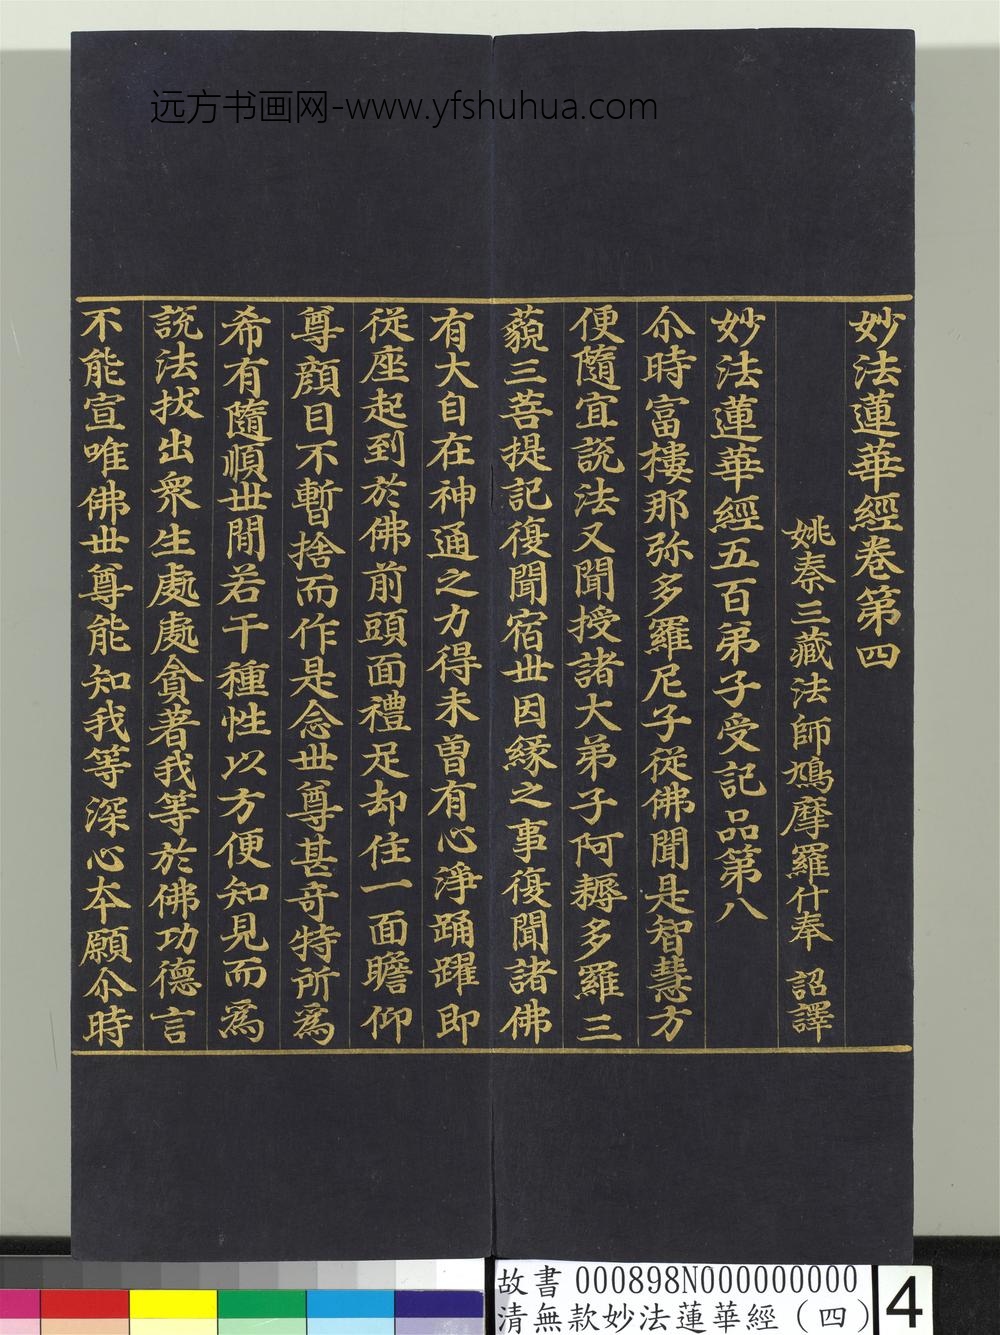 远方书画网-www.yfshuhua.com
妙法蓮華經卷第四
姚秦三藏法師鳩摩羅什奉 詔譯
妙法蓮華經五百弟子受記品第八
尒時富樓那弥多羅尼子從佛聞是智慧方
便隨宜說法又聞授諸大弟子阿耨多羅三
藐三菩提記復聞宿世因緣之事復聞諸佛
有大自在神通之力得未曾有心淨踊躍即
從座起到於佛前頭面禮足却住一面瞻仰
尊顏目不暫捨而作是念世尊甚奇特所為
希有隨順世間若干種性以方便知見而為
說法拔出衆生處處貪著我等於佛功德言
不能宣唯佛世尊能知我等深心本願尒時
故書 000898N000000000
清無款妙法蓮華經（四）
4